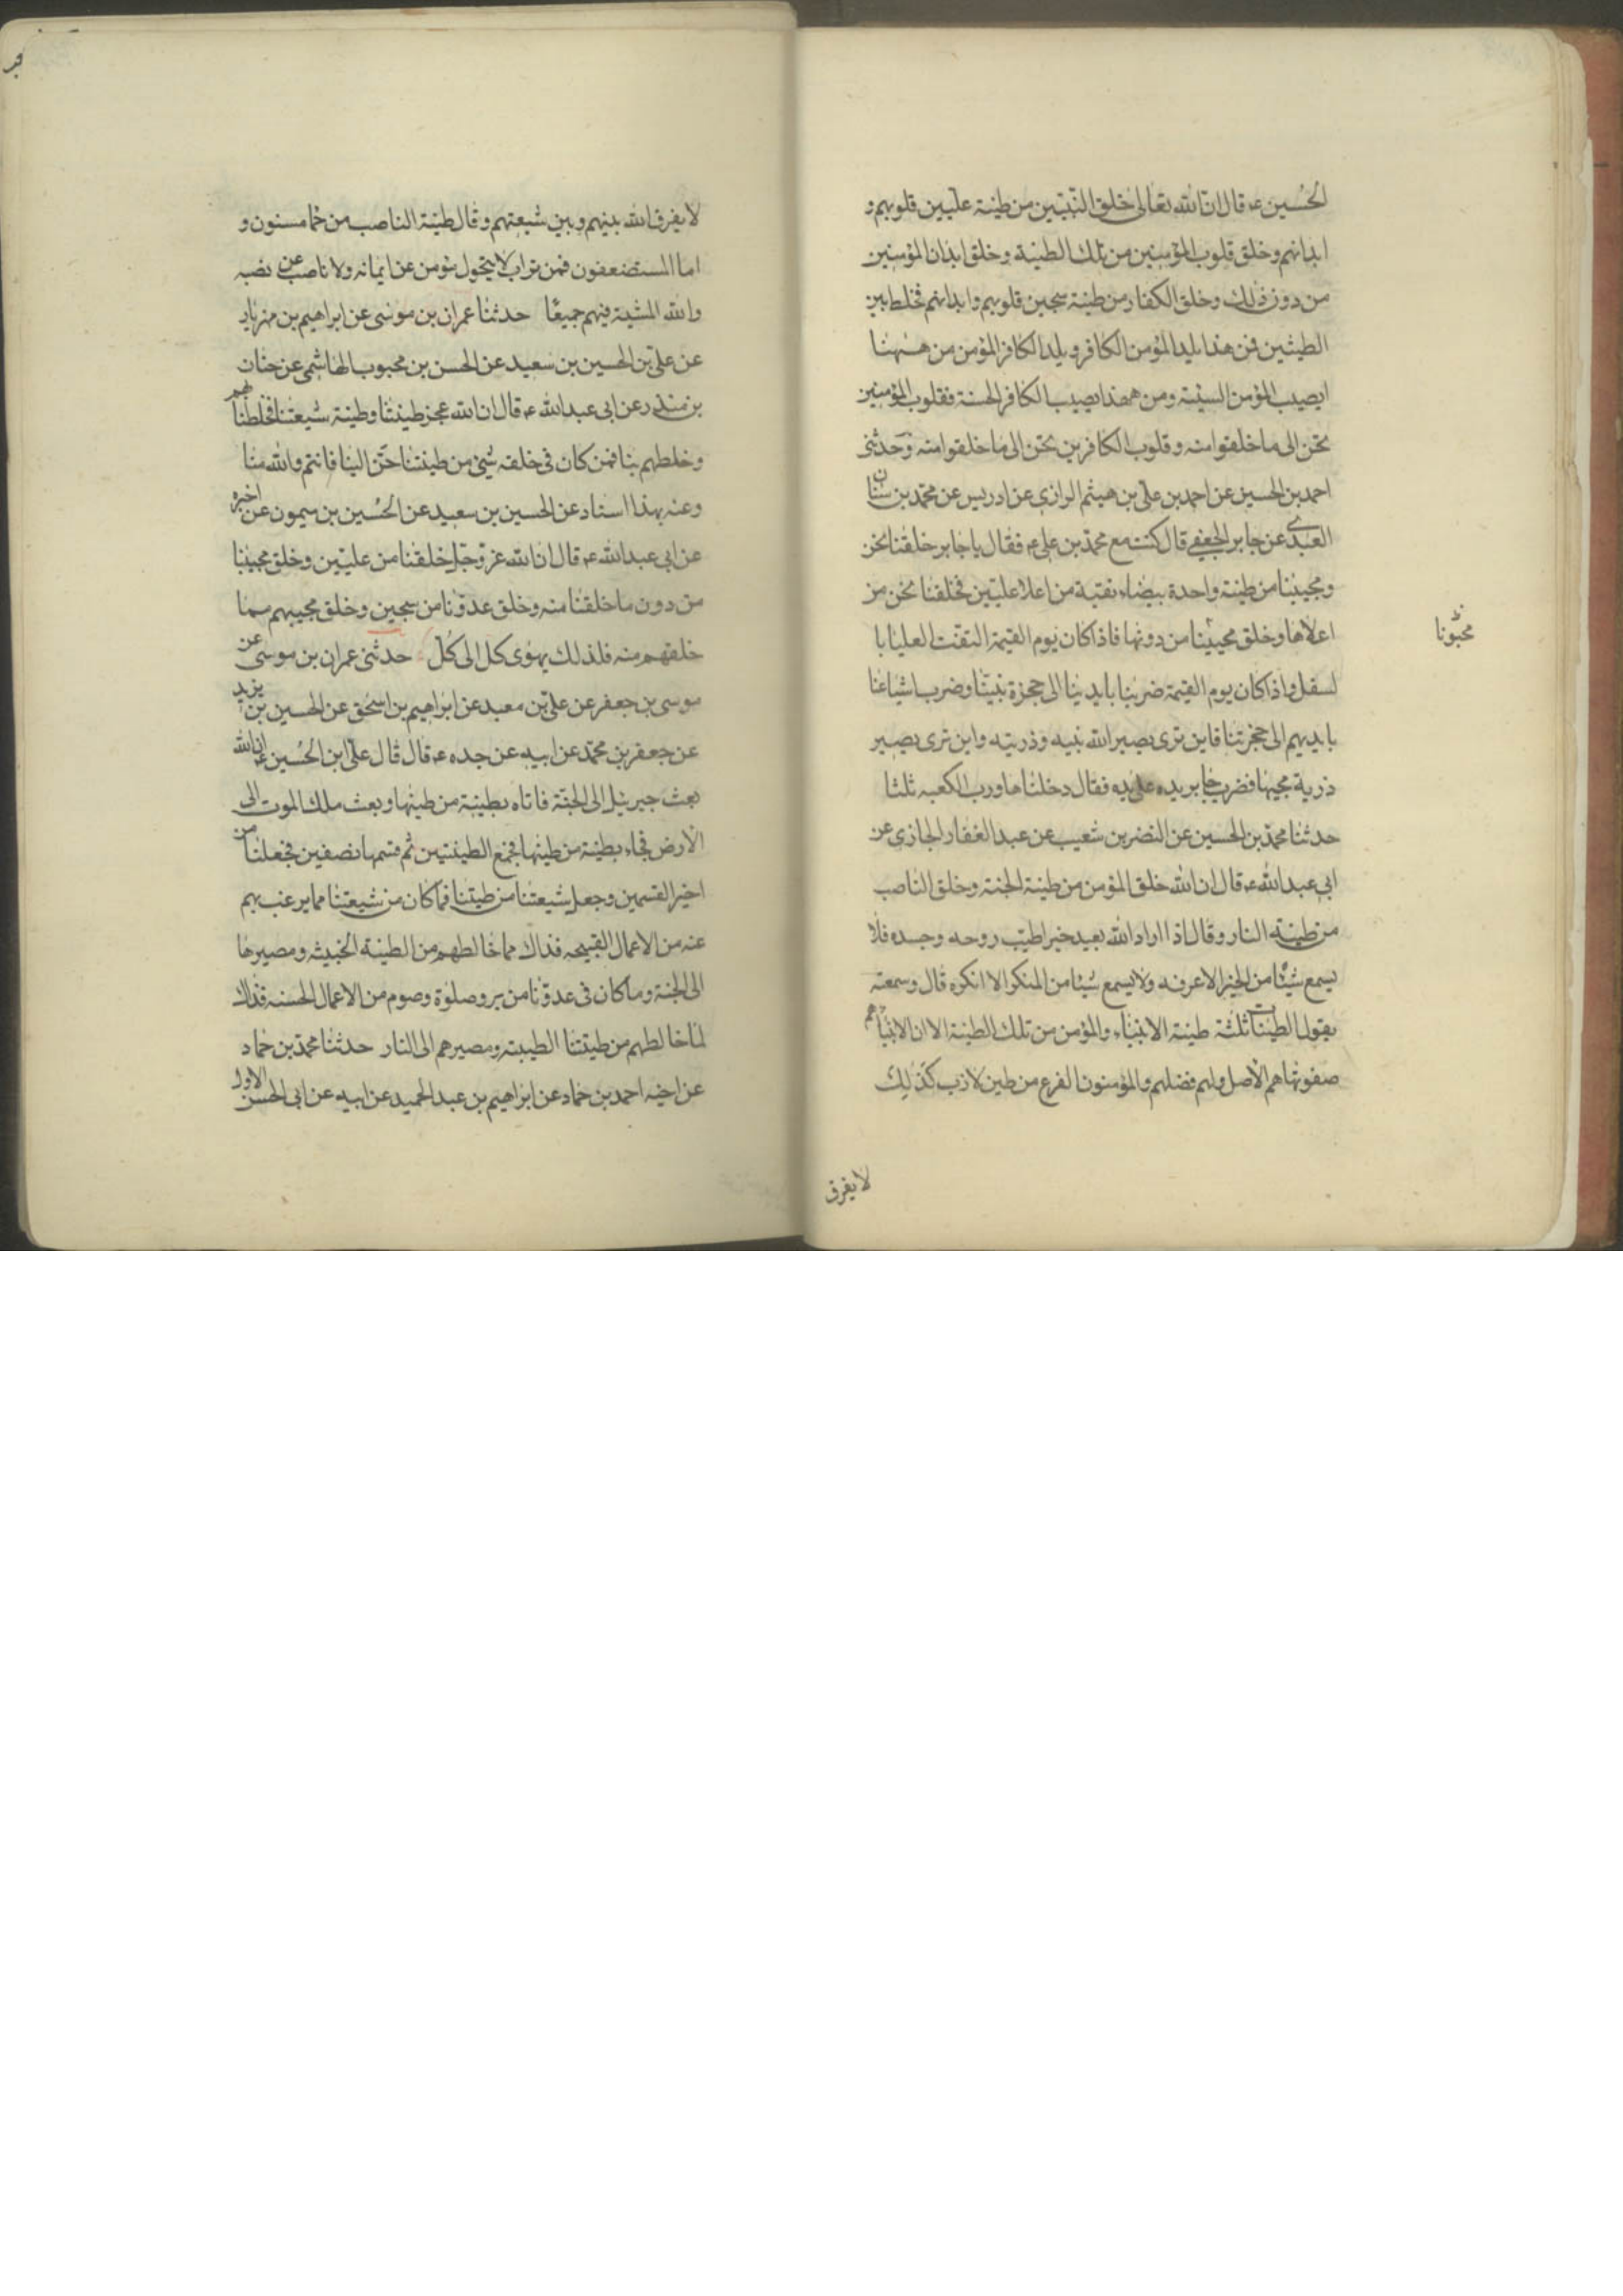 الحُسين ع قال ان الله تعالى خلق النّبيّين من طينة علّيين قلوبهم و
ابدانهم وخلق قلوب المؤمنين من تلك الطينة وخلق ابدان المؤمنين
من دون ذلك وخلق الكفار من طينة سجين قلوبهم وابدانهم فخلط بين
الطينتين فمن هذا يلد المؤمن الكافر ويلد الكافر المؤمن من ههنا
يصيب المؤمن السيئة ومن ههنا يصيب الكافر الحسنة فقلوب المؤمنين
تحن الى ما خلقوا منه وقلوب الكافرين تحن الى ما خلقوا منه وحدثني
احمد بن الحسين عن احمد بن علي بن هيثم الرازي عن ادريس عن محمد بن سنان
العبدى عن جابر الجعفي قال كنت مع محمد بن علي ع فقال يا جابر خلقنا نحن
ومحبينا من طينة واحدة بيضاء نقية من اعلا عليّين فخلقنا نحن من
اعلاها وخلق محبينا من دونها فاذا كان يوم القيمة التفت العليا با
لسفلى واذا كان يوم القيمة ضربنا بايدينا الى حجزة نبيّنا وضرب اشياعنا
بايديهم الى حجزتنا فاين ترى يصير الله نبيه وذريته واين ترى يصير
ذرية محبينا فضرب جابر يده على يده فقال دخلناها ورب الكعبه ثلثا
حدثنا محمد بن الحسين عن النضر بن شعيب عن عبد الغفار الجازى عن
ابي عبد الله ع قال ان الله خلق المؤمن من طينة الجنة وخلق الناصب
من طينة النار وقال اذا اراد الله بعبد خيرا طيّب روحه وجسده فلا
يسمع شيئا من الخير الا عرفه ولا يسمع شيئا من المنكر الا انكره قال وسمعته
يقول الطينات ثلثة طينة الانبياء والمؤمن من تلك الطينة الا ان الانبياء هم
صفوتها هم الاصل ولهم فضلهم والمؤمنون الفرع من طين لازب كذلك
محبّونا
لا يفرق
لا يفرق الله بينهم وبين شيعتهم وقال طينة الناصب من حما مسنون و
اما المستضعفون فمن تراب لا يتحول مؤمن عن ايمانه ولا ناصب عن نصبه
ولله المشية فيهم جميعًا حدثنا عمران بن موسى عن ابراهيم بن مهزيار
عن علي بن الحسين بن سعيد عن الحسن بن محبوب الهاشمي عن حنان
بن منذر عن ابي عبد الله ع قال ان الله عجز طينتنا وطينة شيعتنا فخلطنا بهم
وخلطهم بنا فمن كان في خلقه شئ من طينتنا حنّ الينا فانتم والله منا
وعنه بهذا اسناد عن الحسين بن سعيد عن الحُسين بن ميمون عن اخبره
عن ابي عبد الله ع قال ان الله عز وجل خلقنا من عليّين وخلق محبينا
من دون ما خلقنا منه وخلق عدوّنا من سجين وخلق محبيهم مما
خلقهم منه فلذلك يهوى كل الى كل حدثني عمران بن موسى عن
موسى بن جعفر عن علي بن معبد عن ابراهيم بن اسحق عن الحسين بن يزيد
عن جعفر بن محمد عن ابيه عن جده ع قال قال علي ابن الحُسين ع ان الله
بعث جبرئيل الى الجنّة فاتاه بطينة من طينها وبعث ملك الموت الى
الارض فجاء بطينة من طينها فجمع الطينتين ثم قسمها نصفين فجعلنا من
خير القسمين وجعل شيعتنا من طينتنا فما كان من شيعتنا مما يرغب بهم
عنه من الاعمال القبيحه فذاك مما خالطهم من الطينة الخبيثه ومصيرها
الى الجنة وما كان في عدوّنا من بر وصلوة وصوم من الاعمال الحسنه فذاك
لما خالطهم من طينتنا الطيبة ومصيرهم الى النار حدثنا محمد بن حماد
عن اخيه احمد بن حماد عن ابراهيم بن عبد الحميد عن ابيه عن ابي الحسن الاول